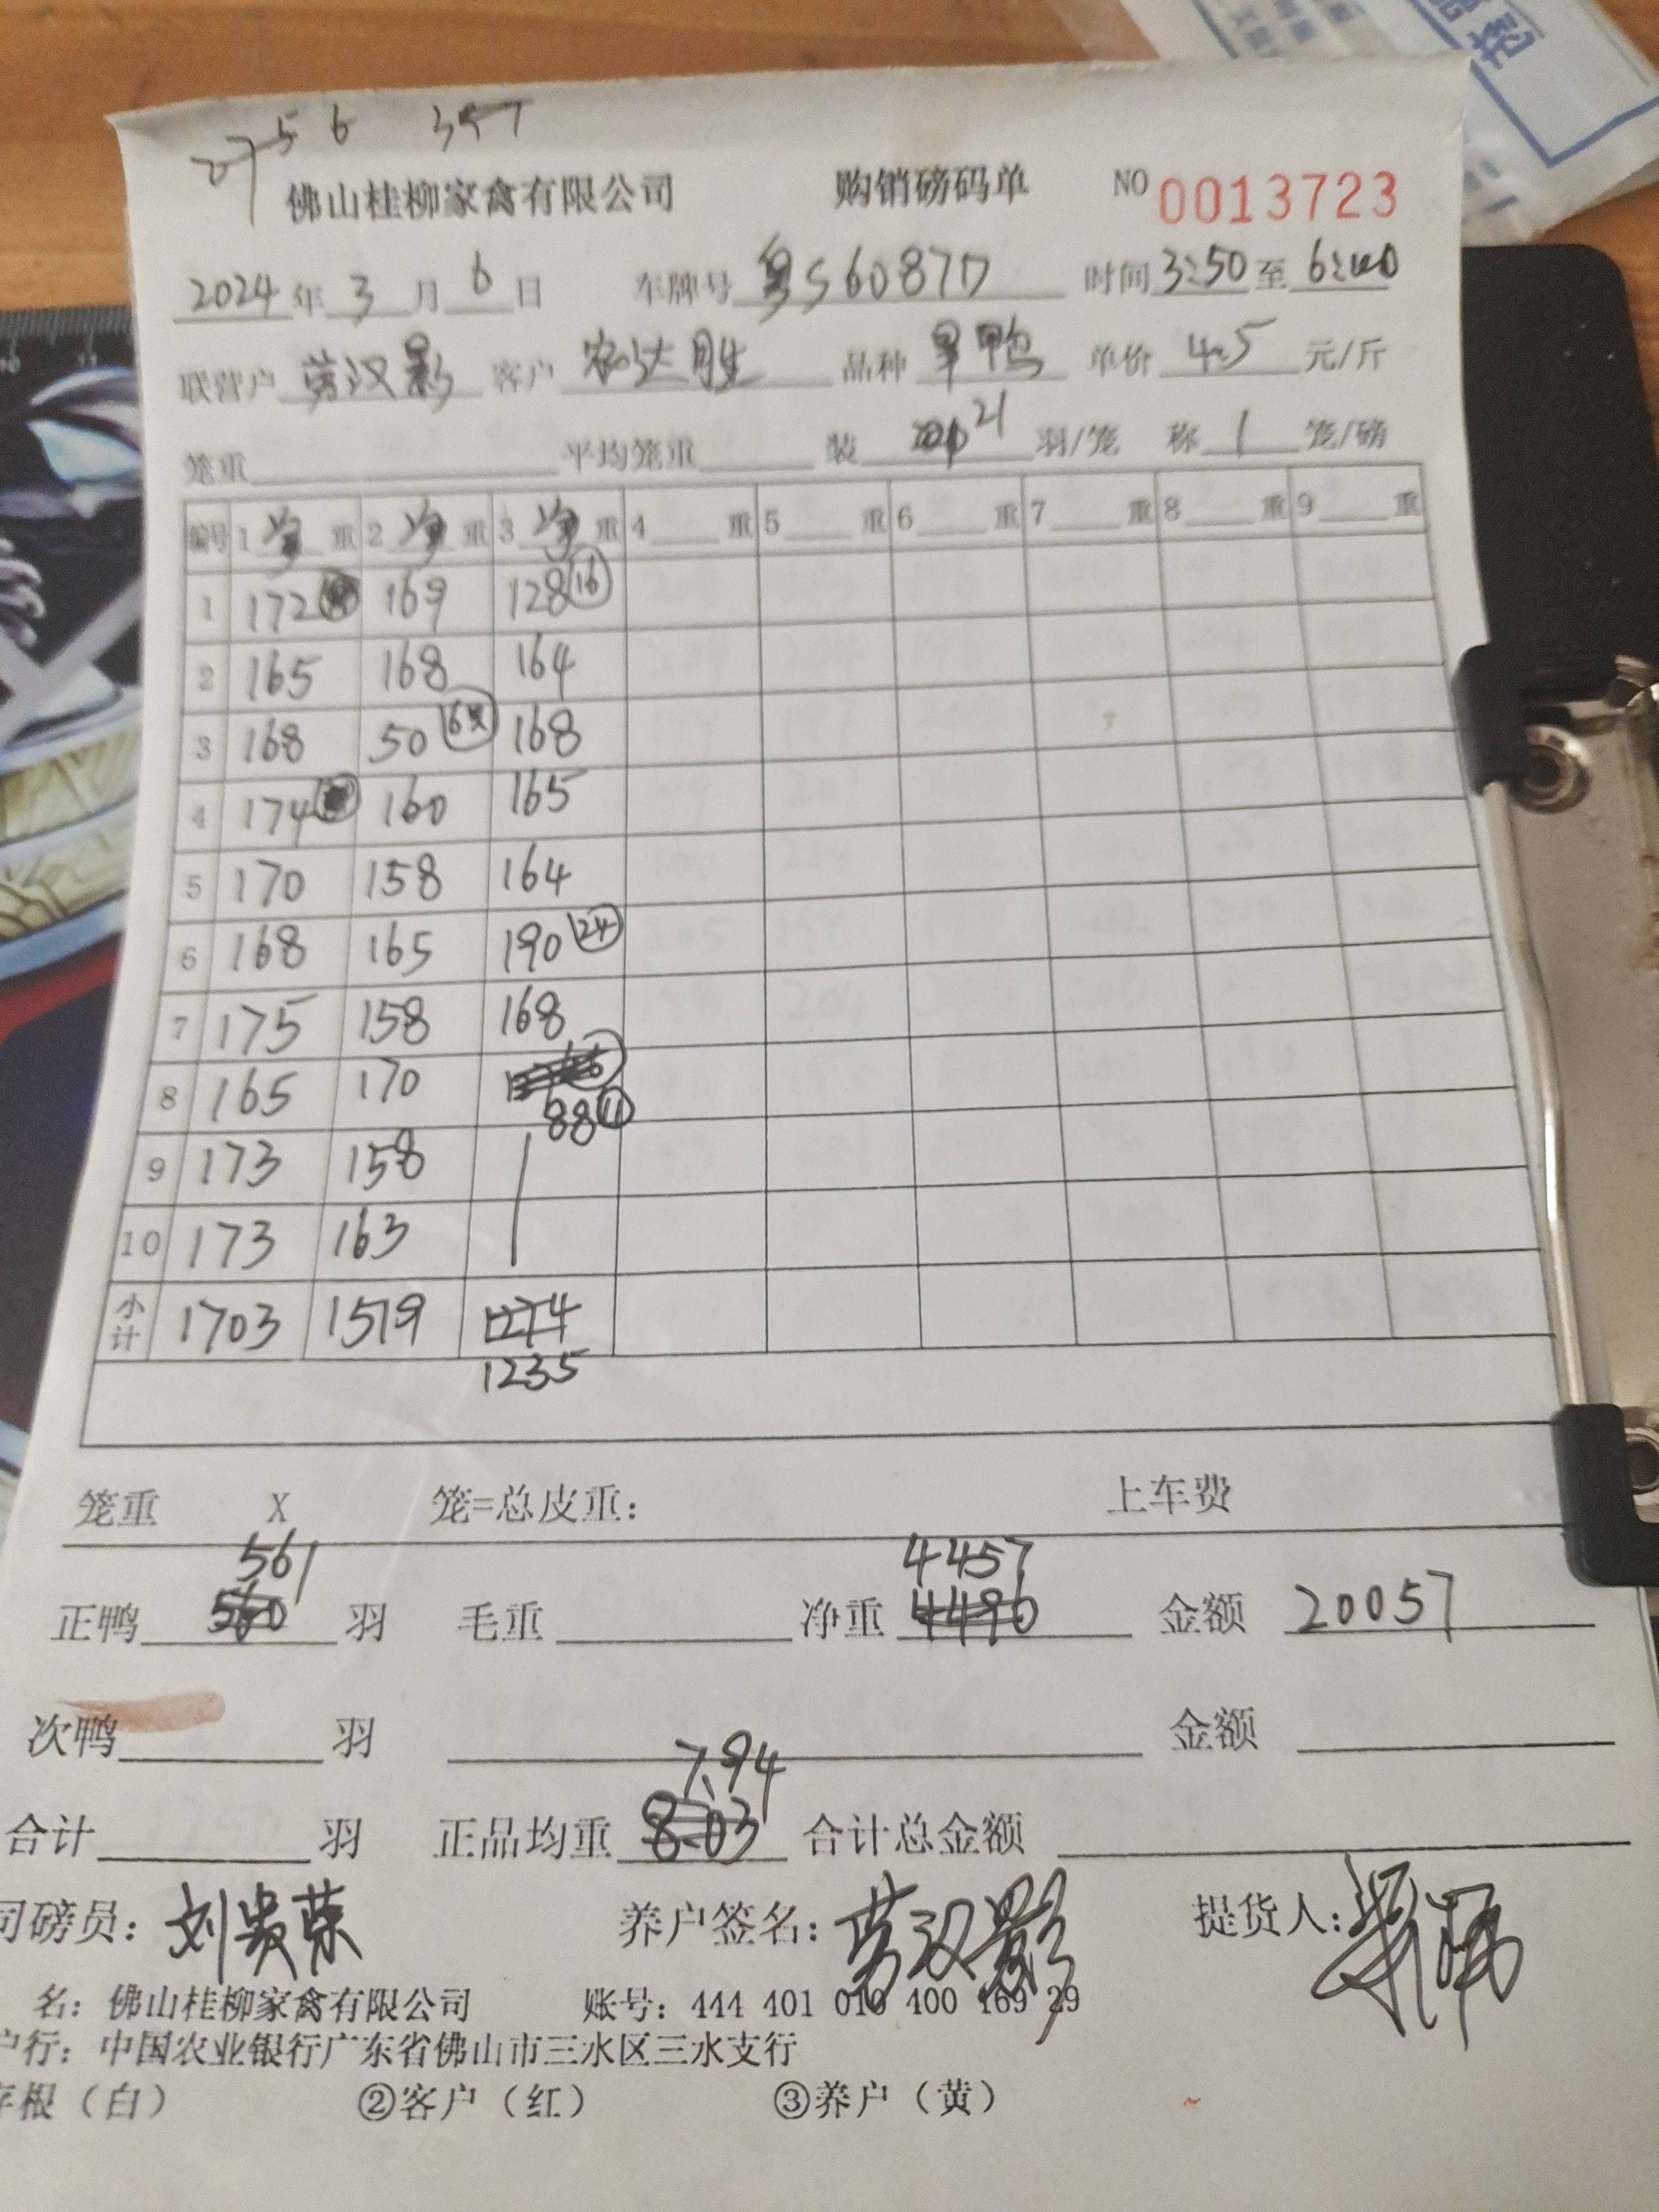 2756 397
佛山桂柳家禽有限公司 购销磅码单 NO 0013723
2024年3月6日 车牌号 粤S6087D 时间 3:50 至 6:00
联营户 劳汉影 客户 农达胜 品种 旱鸭 单价 4.5 元/斤
笼重 平均笼重 装 21 羽/笼 称 1 笼/磅
编号 1 净 重 2 净 重 3 净 重 4 重 5 重 6 重 7 重 8 重 9 重
1 172 169 128 16
2 165 168 164
3 168 50 6只 168
4 174 160 165
5 170 158 164
6 168 165 190 24
7 175 158 168
8 165 170 88 11
9 173 158
10 173 163
小计 1703 1519 1274
1235
笼重 X 笼=总皮重: 上车费
561 4457
正鸭 560 羽 毛重 净重 4496 金额 20057
次鸭 羽 金额
7.94
合计 羽 正品均重 8.03 合计总金额
司磅员: 刘贵荣 养户签名: 劳汉影 提货人:
名: 佛山桂柳家禽有限公司 账号: 444 401 010 400 169 29
户行: 中国农业银行广东省佛山市三水区三水支行
存根(白) ②客户(红) ③养户(黄)